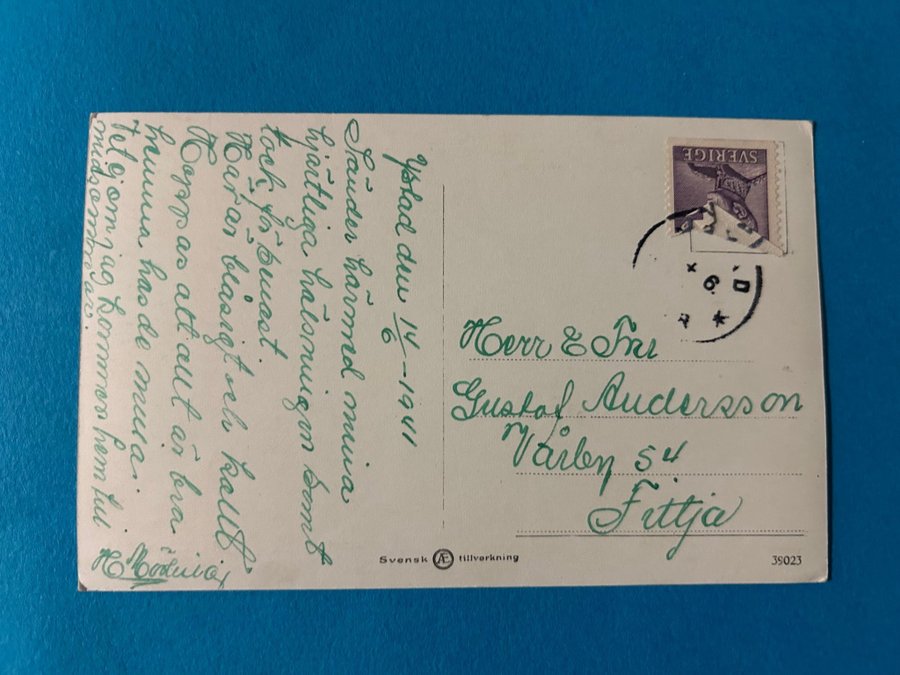 Ystad den 14/6 – 1941
Sänder härmed mina
hjärtliga hälsningar samt
tack för senast
Här är blåsigt och kallt
Hoppas att allt är bra
hemma hos de mina.
Vet ej om jag kommer hem till
midsommar.
H
Herr & Fru
Gustaf Andersson
Vårby 54
Fittja
SVERIGE
D
6.
Svensk Æ tillverkning
39023